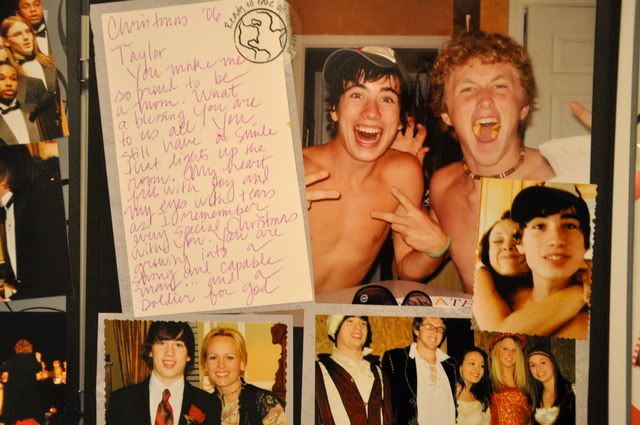 Christmas '06
Ready to take on
Taylor
You make me
so proud to be
a mom. What
a blessing you are
to us all. You
still have a smile
that lights up the
room. My heart
fills with joy and
my eyes with tears
as I remember
every special Christmas
with you. You are
growing into a
strong and capable
man... and a
soldier for god
ATE